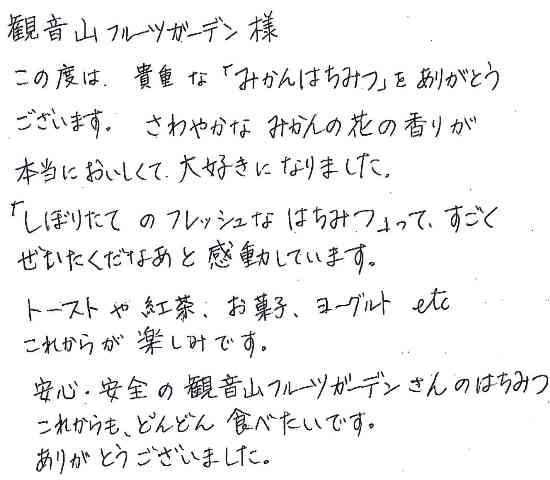 観音山フルーツガーデン様
この度は、貴重な「みかんはちみつ」をありがとう
ございます。さわやかなみかんの花の香りが
本当においしくて、大好きになりました。
「しぼりたてのフレッシュなはちみつ」って、すごく
ぜいたくだなあと感動しています。
トーストや紅茶、お菓子、ヨーグルト etc
これからが楽しみです。
安心・安全の観音山フルーツガーデンさんのはちみつ
これからも、どんどん食べたいです。
ありがとうございました。